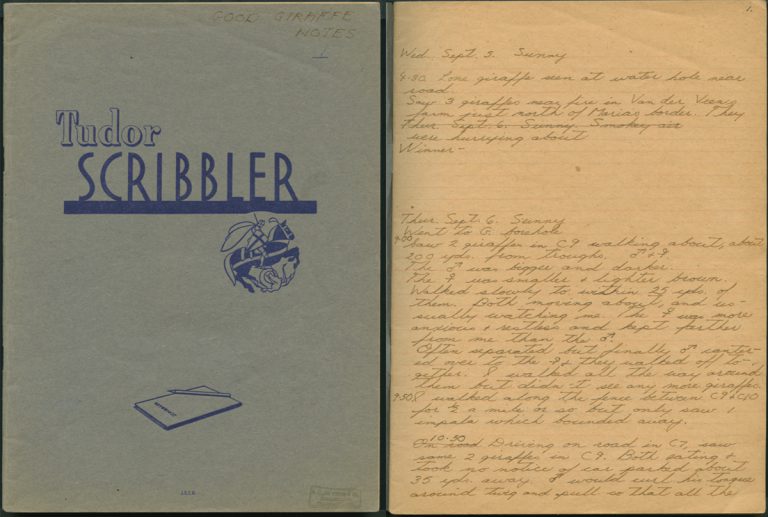 GOOD GIRAFFE
NOTES
1
Tudor
SCRIBBLER
1.
Wed. Sept. 5. Sunny
4.30 Lone giraffe seen at water hole near
road.
Saw 3 giraffes near fire in Van der
farm just north of Marias border. They
Thur. Sept. 6. Sunny. Smokey air
were hurrying about
Winner-
Thur. Sept. 6. Sunny
Went to G. borehole
9.00 Saw 2 giraffes in C9 walking about, about
200 yds. from troughs. ♂ + ♀.
The ♂ was bigger and darker.
The ♀ was smaller + lighter brown.
Walked slowly to within 25 yds. of
them. Both moving about and us-
ually watching me. The ♀ was more
anxious + restless and kept farther
from me than the ♂.
Often separated but finally ♂ canter-
ed over to the ♀ + they walked off to-
gether. I walked all the way around
them but didn't see any more giraffe.
9.50 I walked along the fence between C9 + C10
for ½ a mile or so but only saw 1
impala which bounded away.
10.50
On road Driving on road in C7, saw
same 2 giraffes in C9. Both eating +
took no notice of car parked about
35 yds. away. ♂ would curl his tongue
around twig and pull so that all the